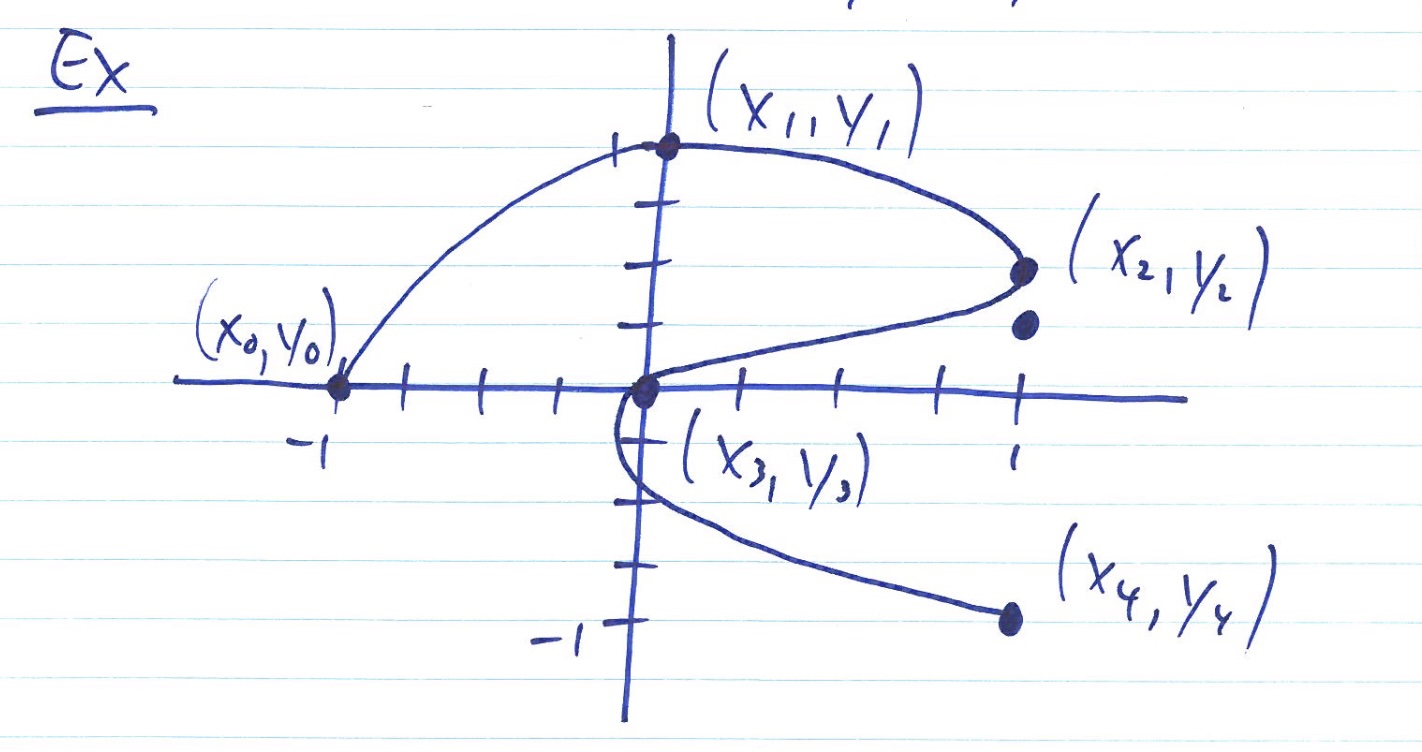 Ex
(x₁, y₁)
(x₂, y₂)
(x₀, y₀)
-1
1
(x₃, y₃)
(x₄, y₄)
-1